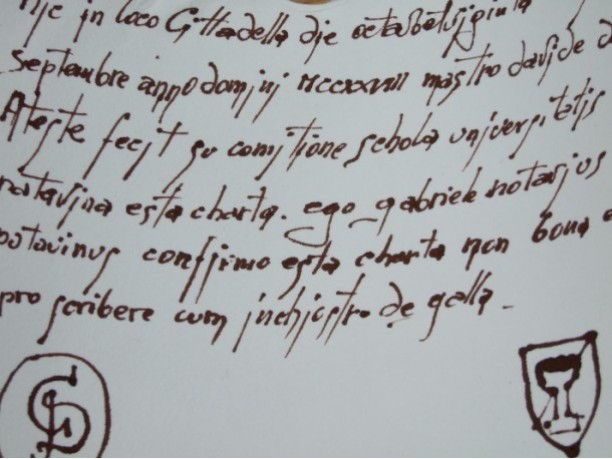 hic in loco Cittadella die octabetvjginta
septembre anno domini MCCXXVIII mastro davide d
Ateste fecit su comitione schola universitatis
patavina esta charta. ego gabriele notarius
patavinus confirmo esta charta non bona
pro scribere cum inchiostro de galla